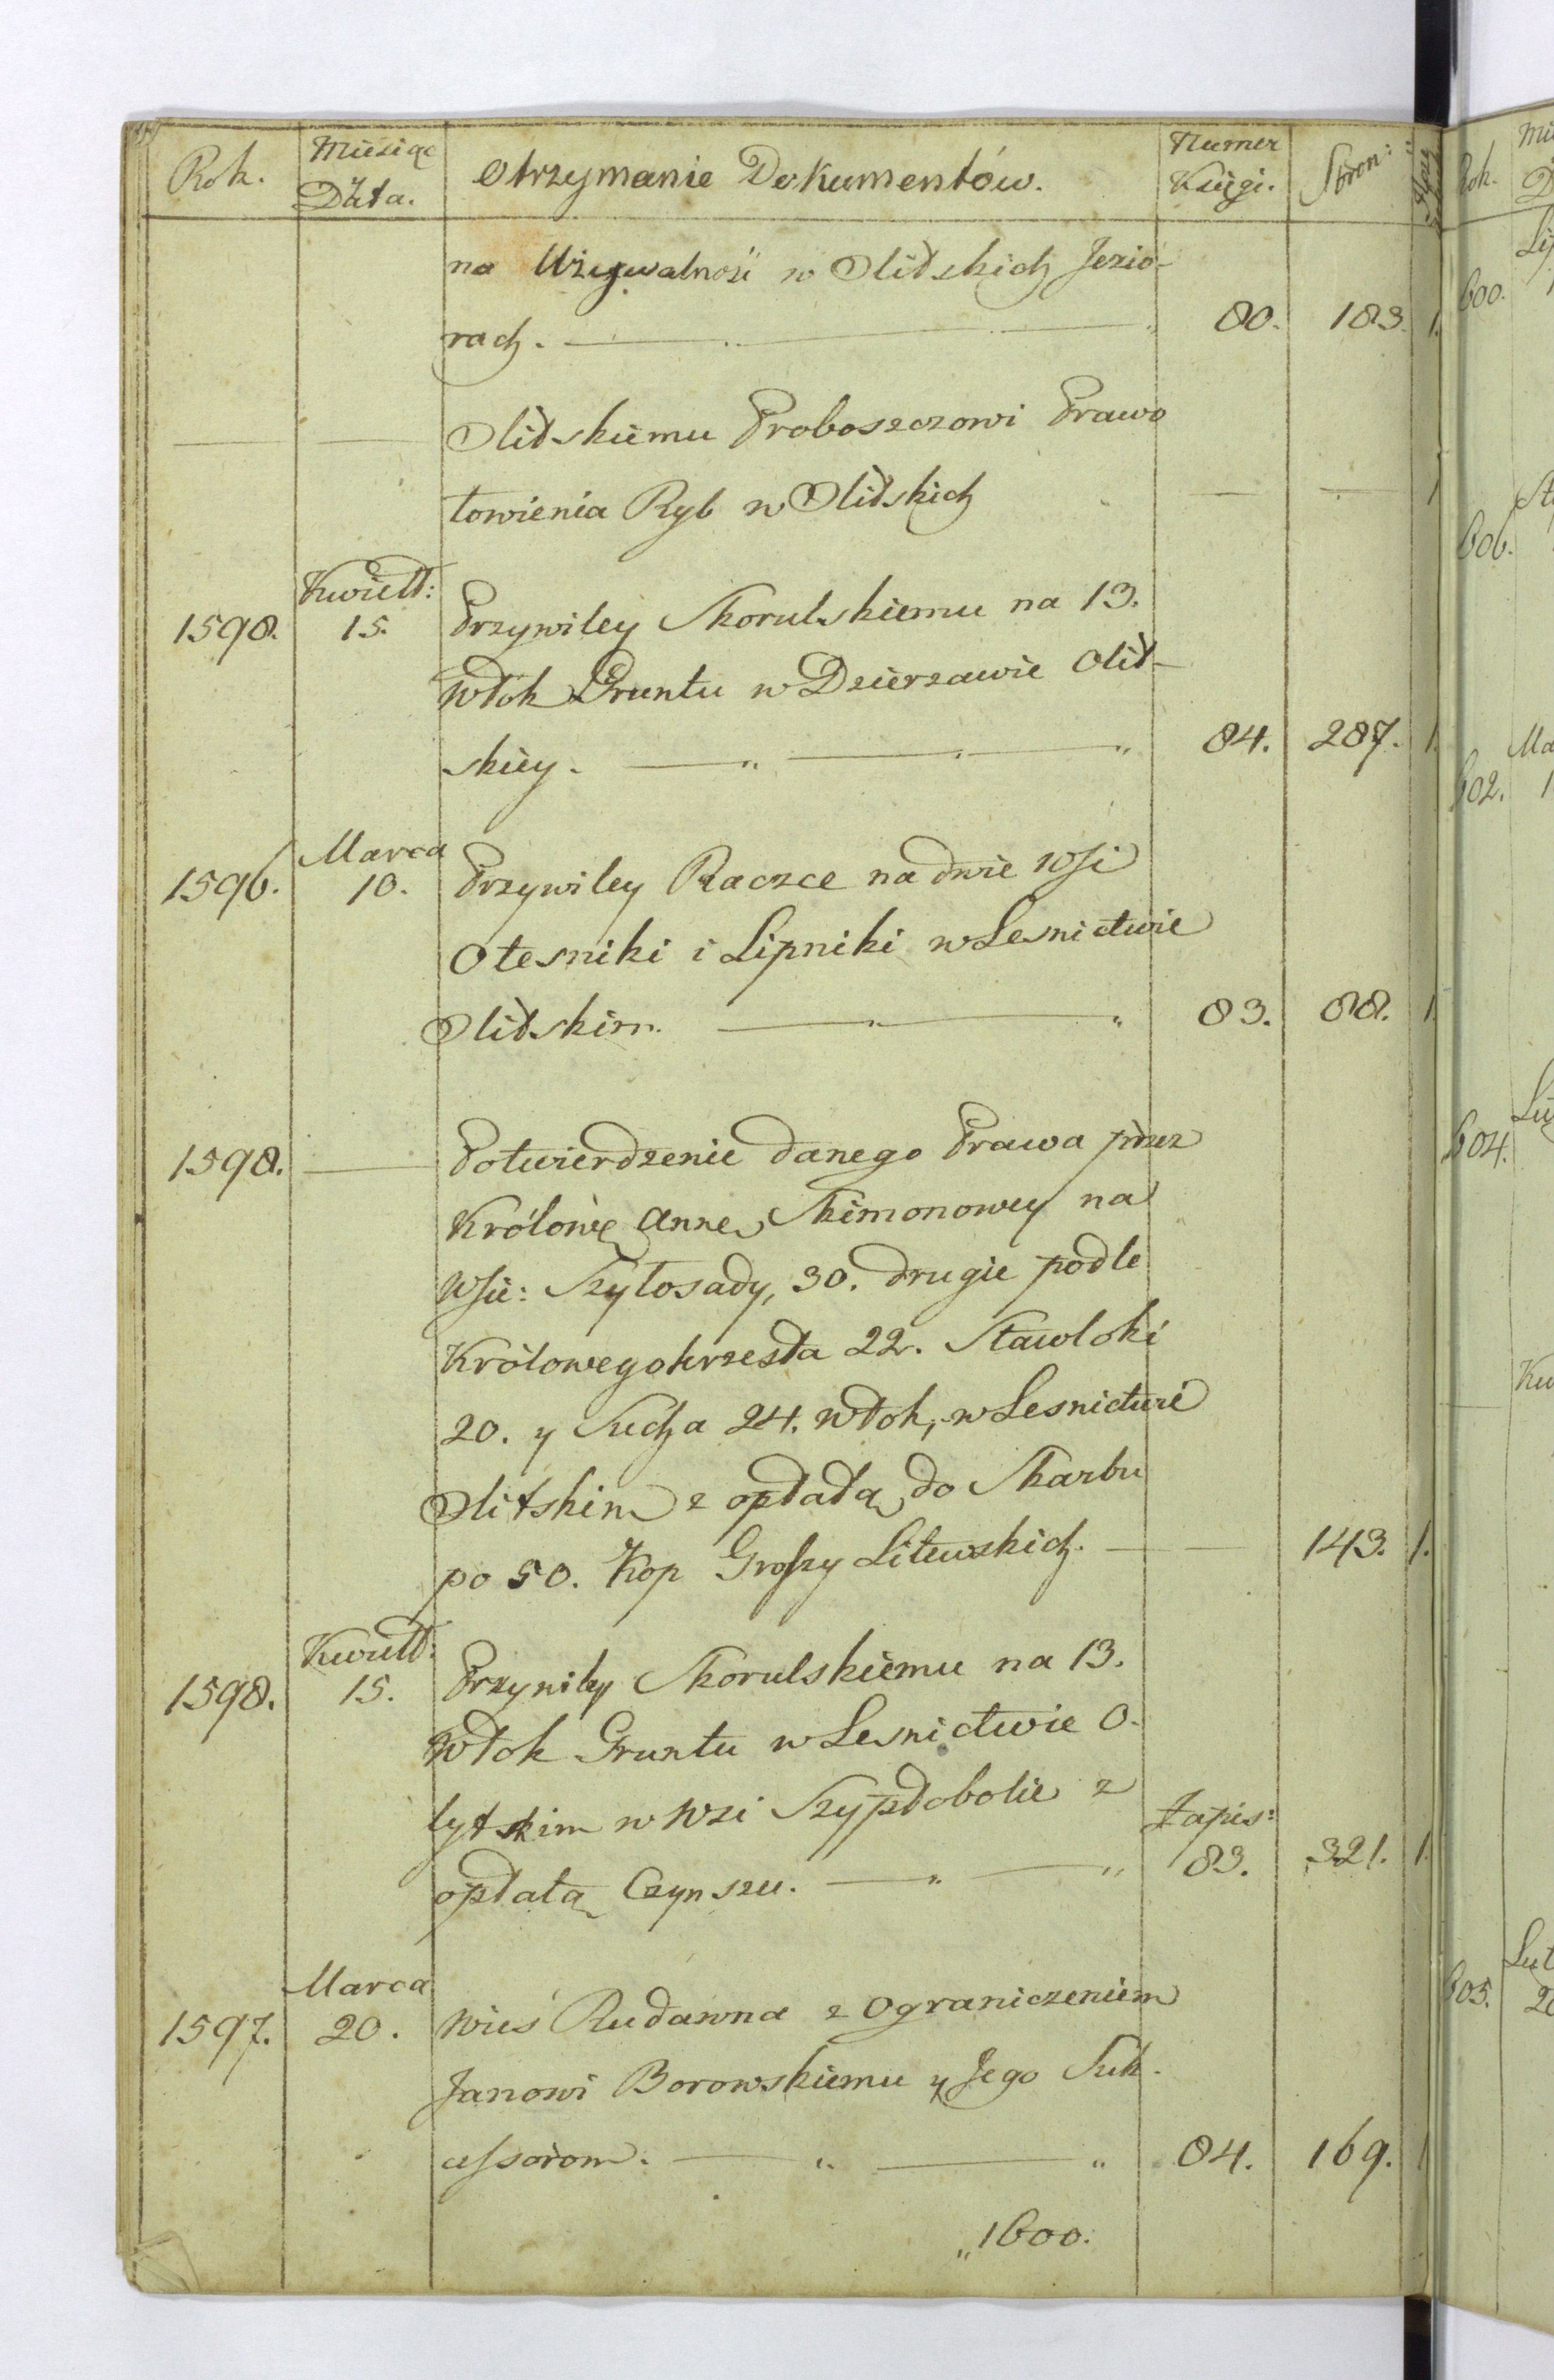 Rok. Miesiąc Data. Otrzymanie Dokumentów. Numer Księgi. Stron:
na Używalność w Olitskich Jezio-
rach. 80. 183. 1.
Olitskiemu Proboszczowi Prawo
łowienia Ryb w Olitskich 1
Kwiett:
1598. 15. Przywiley Skorulskiemu na 13.
włok Gruntu w Dzierzawie Olit-
skiey. 84. 287. 1.
Marca
1596. 10. Przywiley Raczce na dwie wsi
Olesniki i Lipniki w Lesnictwie
Olitskim. 83. 88. 1.
1598. Potwierdzenie danego Prawa przez
Królowę Annę Skimonowey na
Wsie: Szyłosady, 30. drugie podle
Królowegokrzesła 22. Stawloki
20. y Sucha 24. włok, w Lesnictwie
Olitskim z opłatą do Skarbu
po 50. Kop Groszy Litewskich. 143. 1.
Kwiett:
1598. 15. Przywiley Skorulskiemu na 13.
włok Gruntu w Lesnictwie O-
lytskim w Wsi Szypłobolie z Zapis:
opłatą Czynszu. 83. 321. 1.
Marca
1597. 20. Wieś Rudawna z Ograniczeniem
Janowi Borowskiemu y Jego Suk-
cessorom. 84. 169. 1
1600.